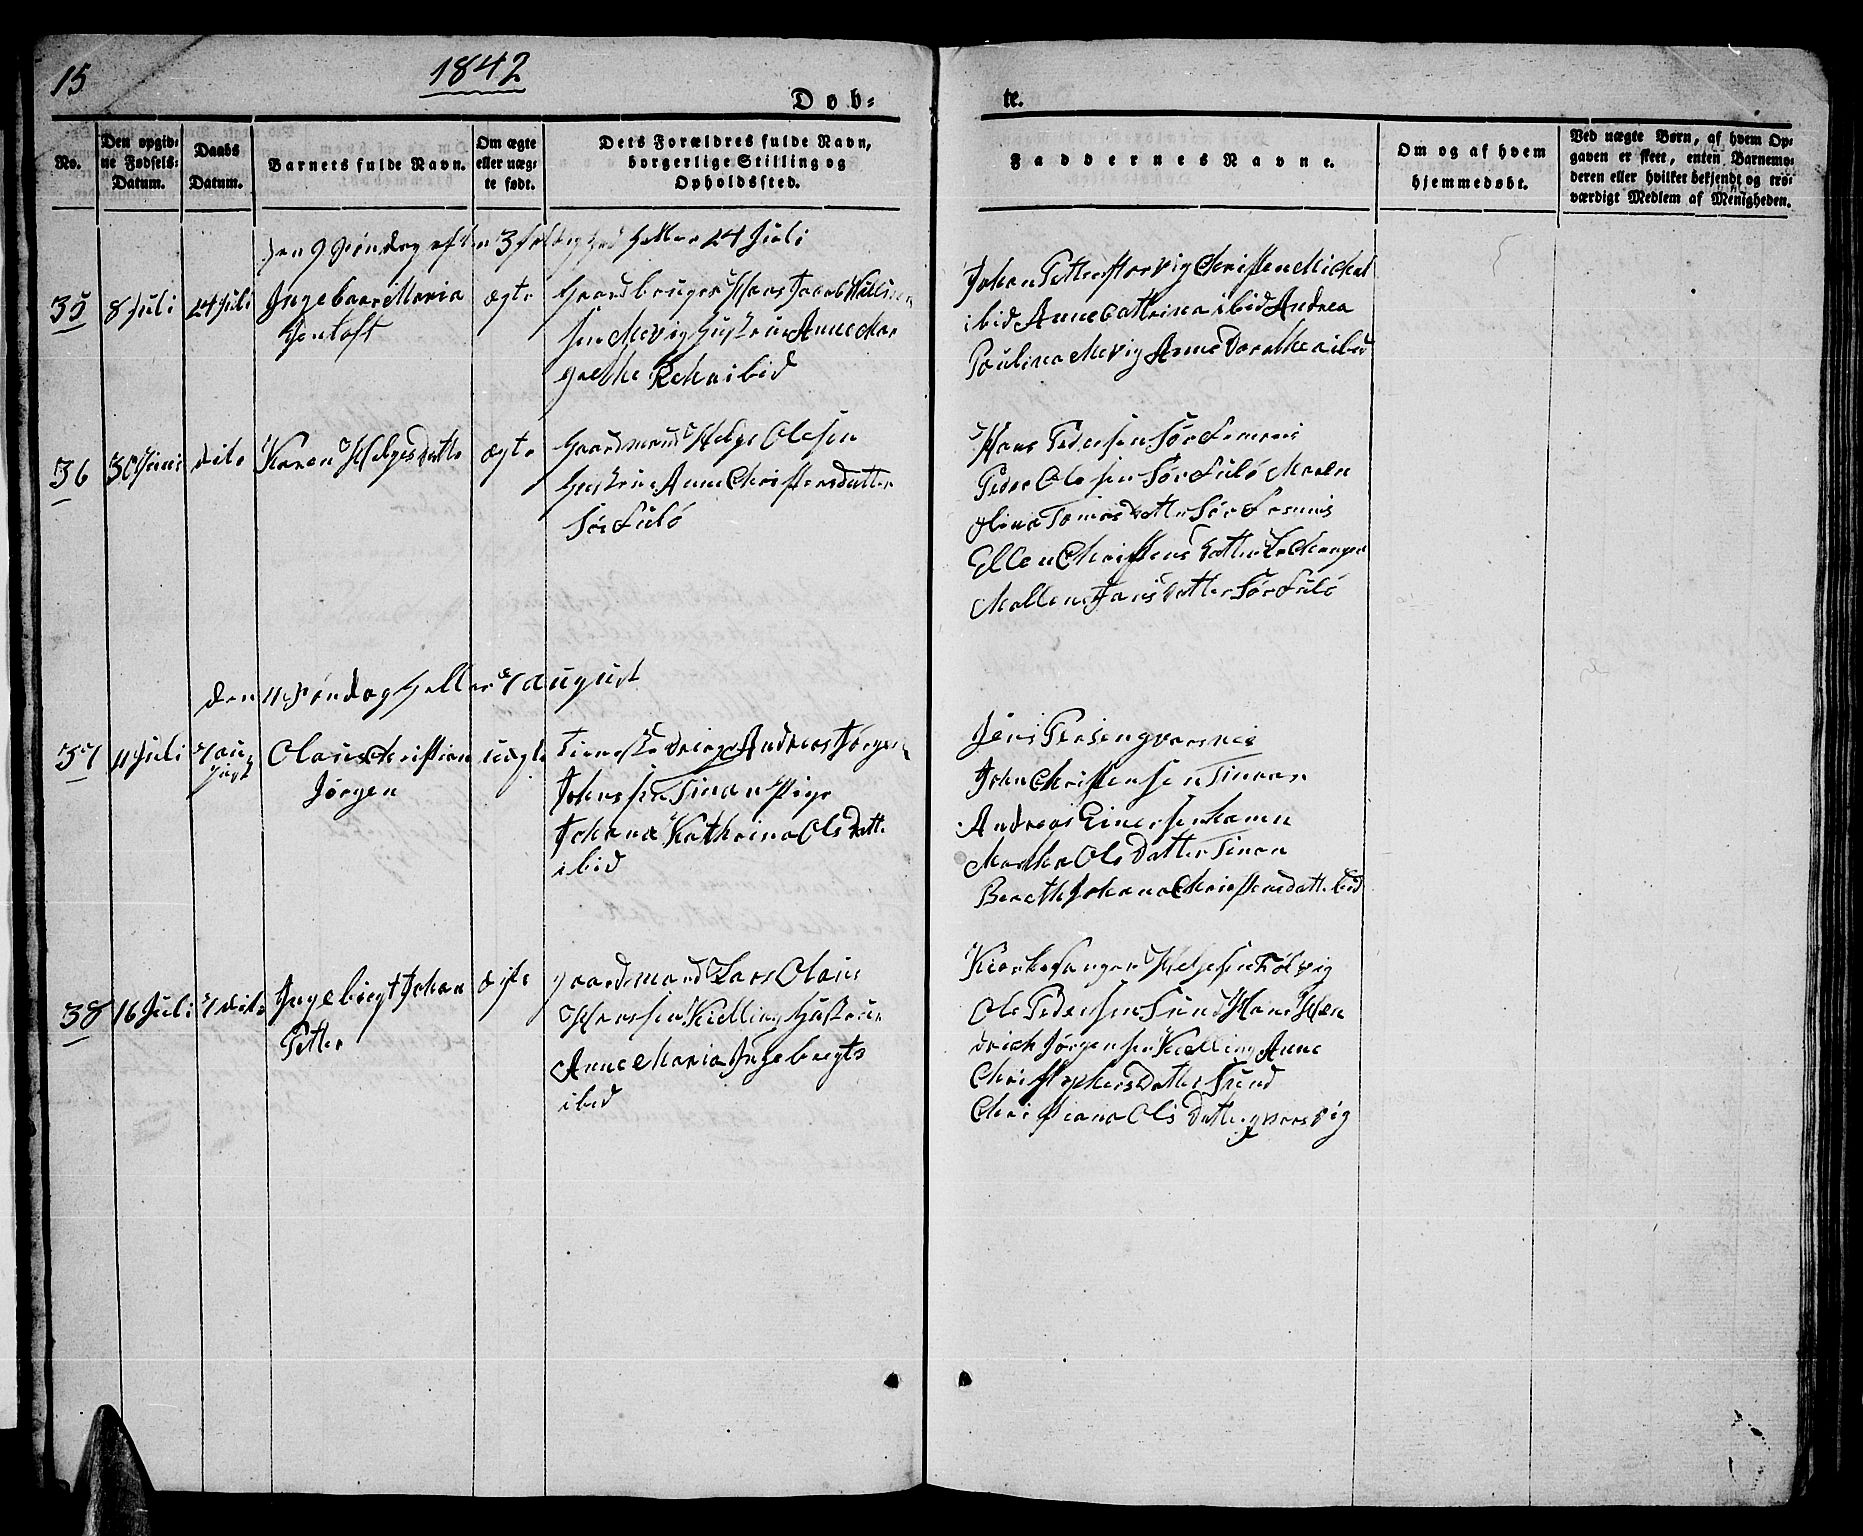 15
1842
Dob-
te.
No.
Den opgiv-
ne Fødsels-
Datum.
Daabs
Datum.
Barnets fulde Navn.
Om ægte
eller uæg-
te født.
Dets Forældres fulde Navn,
borgerlige Stilling og
Opholdssted.
Faddernes Navne.
Om og af hvem
hjemmedøbt.
Ved uægte Børn, af hvem Op-
gaven er skeet, enten Barnemo-
deren eller hvilket bekjendt og tro-
værdigt Medlem af Menigheden.
den 9 Søndag efter 24 Juli
35 8 Juli 24 Juli Ingebaar Maria
Jentoft
ægte Gaardbruger Hans Jacob
sen Mevig Hustrue Anne Mar
grethe ibid
Johan Petter Storvig Christen Michal
ibid Anne Cathrina ibid Andrea
Paulina Mevig Anne Dorathea ibid
36 30 Juni dito Karen Helgesdatter ægte Gaardmand Helge Olesen
Hustrue Anne Christensdatter
Sør Fulø
Hans Pedersen Sør
Peder Olesen Sør Fulø Maren
Olina Tomasdatter Sør
Ellen Christens Datter
Mallene Jansdatter Sør Fulø
den 11 Søndag holler 7 August
37 11 Juli 7 au
gust
Olaus Christian
Jørgen
uægte Tieneste Drenge Andreas Jørgen
Johnssen Tinan Pige
Johana Kathrina Ols Datter
ibid
Jens
John Christensen Tinan
Andreas Einersen
Martha Ols Datter Tinan
Bereth Johana Christensdatter ibid
38 16 Juli 7 dito Ingebrigt Johan
Petter
ægte gaardmand Lars Olaus
Hanssen Kielling Hustrue
Anne Maria Ingebregts
ibid
Kierkesanger Helgesen
Ole Pedersen Sund Hans Hen
drich Jørgensen Kielling Anne
Christophers Datter Sund
Christiana Ols Datter